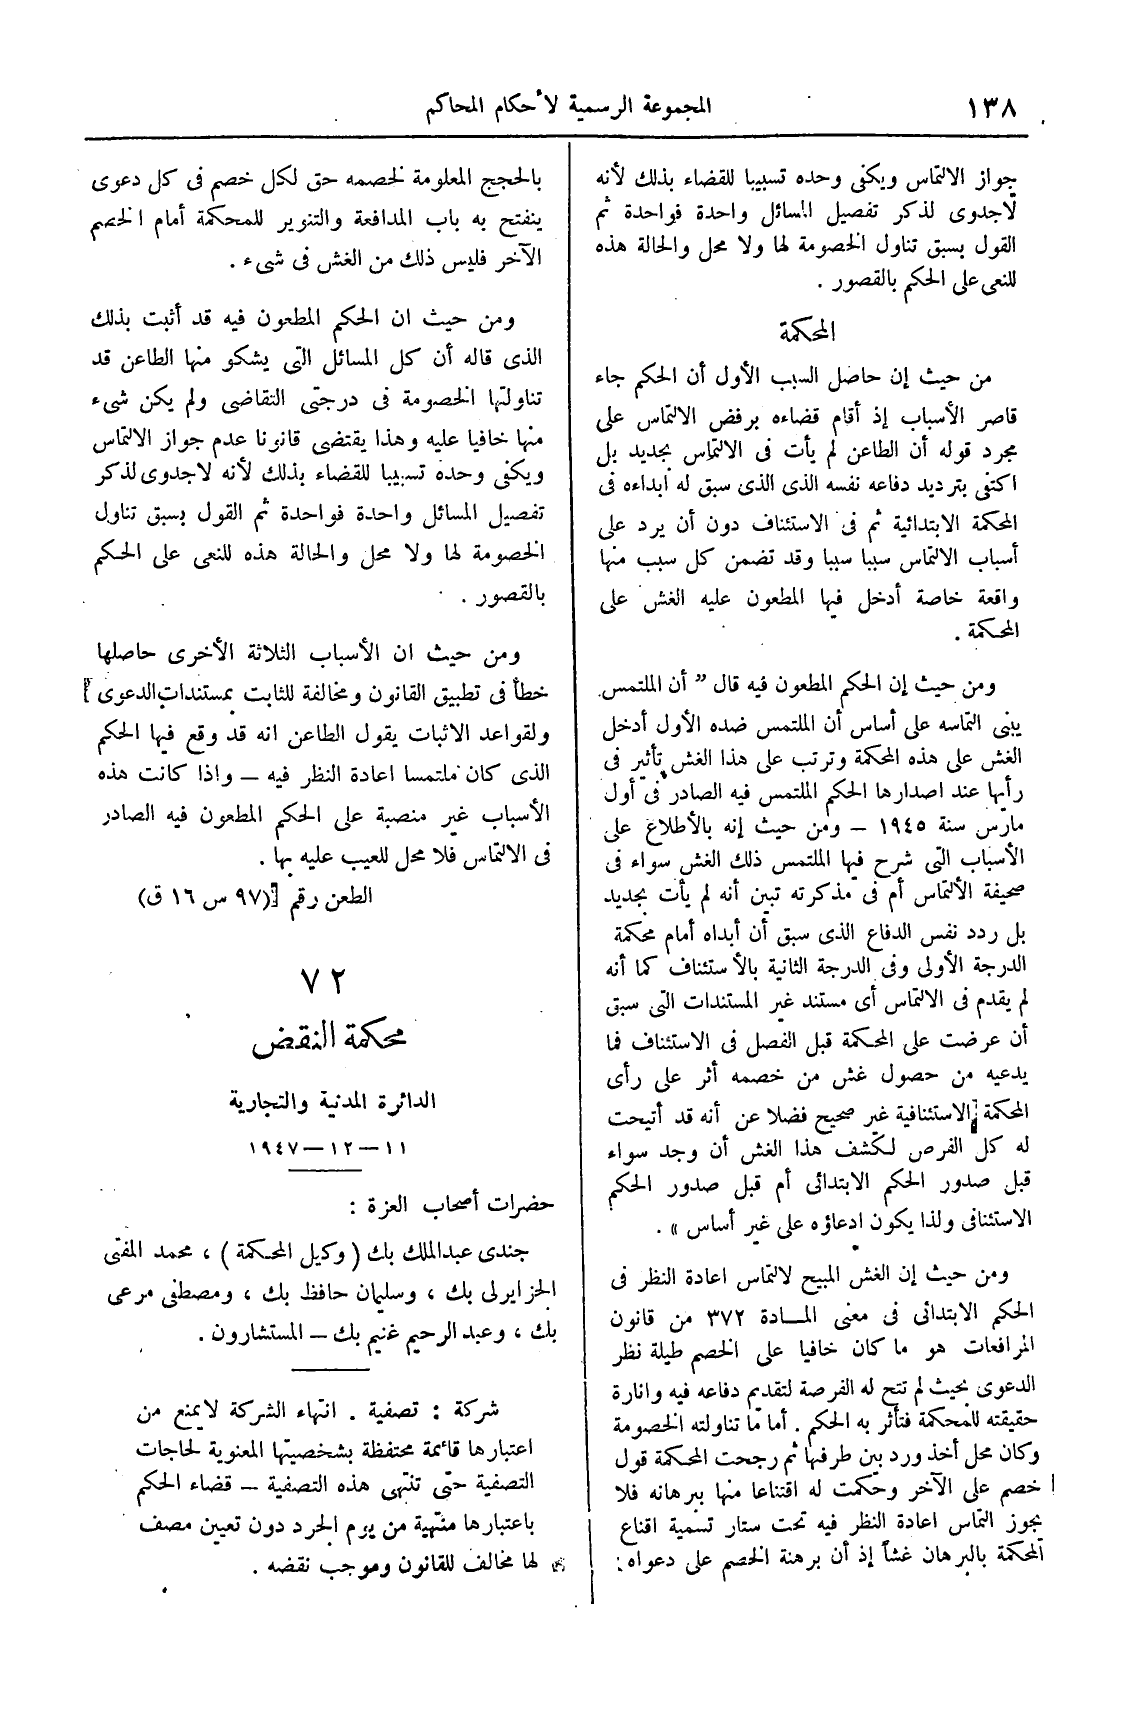 ١٣٨
المجموعة الرسمية لأحكام المحاكم
جواز الالتماس ويكفى وحده تسبيبا للقضاء بذلك لأنه
لاجدوى لذكر تفصيل المسائل واحدة فواحدة ثم
القول بسبق تناول الخصومة لها ولا محل والحالة هذه
للنعى على الحكم بالقصور .
المحكمة
من حيث إن حاصل السبب الأول أن الحكم جاء
قاصر الأسباب إذ أقام قضاءه برفض الالتماس على
مجرد قوله أن الطاعن لم يأت فى الالتماس بجديد بل
اكتفى بترديد دفاعه نفسه الذى الذى سبق له ابداءه فى
المحكمة الابتدائية ثم فى الاستئناف دون أن يرد على
أسباب الالتماس سببا سببا وقد تضمن كل سبب منها
واقعة خاصة أدخل فيها المطعون عليه الغش على
المحكمة .
ومن حيث إن الحكم المطعون فيه قال ” أن الملتمس
يبنى التماسه على أساس أن الملتمس ضده الأول أدخل
الغش على هذه المحكمة وترتب على هذا الغش تأثير فى
رأيها عند اصدارها الحكم الملتمس فيه الصادر فى أول
مارس سنة ١٩٤٥ — ومن حيث إنه بالأطلاع على
الأسباب التى شرح فيها الملتمس ذلك الغش سواء فى
صحيفة الألتماس أم فى مذكرته تبين أنه لم يأت بجديد
بل ردد نفس الدفاع الذى سبق أن أبداه أمام محكمة
الدرجة الأولى وفى الدرجة الثانية بالأستئناف كما أنه
لم يقدم فى الالتماس أى مستند غير المستندات التى سبق
أن عرضت على المحكمة قبل الفصل فى الاستئناف فما
يدعيه من حصول غش من خصمه أثر على رأى
المحكمة الاستئنافية غير صحيح فضلا عن أنه قد أتيحت
له كل الفرص لكشف هذا الغش أن وجد سواء
قبل صدور الحكم الابتدائى أم قبل صدور الحكم
الاستئنافى ولذا يكون ادعاؤه على غير أساس » .
ومن حيث إن الغش المبيح لالتماس اعادة النظر فى
الحكم الابتدائى فى معنى المــادة ٣٧٢ من قانون
المرافعات هو ما كان خافيا على الخصم طيلة نظر
الدعوى بحيث لم تتح له الفرصة لتقديم دفاعه فيه وانارة
حقيقته للمحكمة فتأثر به الحكم . أما ما تناولته الخصومة
وكان محل أخذ ورد بين طرفيها ثم رجحت المحكمة قول
خصم على الآخر وحكمت له اقتناعا منها ببرهانه فلا
يجوز التماس اعادة النظر فيه تحت ستار تسمية اقناع
المحكمة بالبرهان غشاً إذ أن برهنة الخصم على دعواه
بالحجج المعلومة لخصمه حق لكل خصم فى كل دعوى
ينفتح به باب المدافعة والتنوير للمحكمة أمام الخصم
الآخر فليس ذلك من الغش فى شىء .
ومن حيث ان الحكم المطعون فيه قد أثبت بذلك
الذى قاله أن كل المسائل التى يشكو منها الطاعن قد
تناولتها الخصومة فى درجتى التقاضى ولم يكن شىء
منها خافيا عليه وهذا يقتضى قانونا عدم جواز الالتماس
ويكفى وحده تسبيبا للقضاء بذلك لأنه لاجدوى لذكر
تفصيل المسائل واحدة فواحدة ثم القول بسبق تناول
الخصومة لها ولا محل والحالة هذه للنعى على الحكم
بالقصور .
ومن حيث ان الأسباب الثلاثة الأخرى حاصلها
خطأ فى تطبيق القانون ومخالفة للثابت بمستندات الدعوى
ولقواعد الاثبات يقول الطاعن انه قد وقع فيها الحكم
الذى كان ملتمسا اعادة النظر فيه — واذا كانت هذه
الأسباب غير منصبة على الحكم المطعون فيه الصادر
فى الالتماس فلا محل للعيب عليه بها .
الطعن رقم (٩٧ س ١٦ ق)
٧٢
محكمة النقض
الدائرة المدنية والتجارية
١١ — ١٢ — ١٩٤٧
حضرات أصحاب العزة :
جندى عبدالملك بك ( وكيل المحكمة ) ، محمد المفتى
الجزايرلى بك ، وسليمان حافظ بك ، ومصطفى مرعى
بك ، وعبد الرحيم غنيم بك — المستشارون .
شركة : تصفية . انتهاء الشركة لايمنع من
اعتبارها قائمة محتفظة بشخصيتها المعنوية لحاجات
التصفية حتى تنتهى هذه التصفية — قضاء الحكم
باعتبارها منتهية من يوم الجرد دون تعيين مصف
لها مخالف للقانون وموجب نقضه .